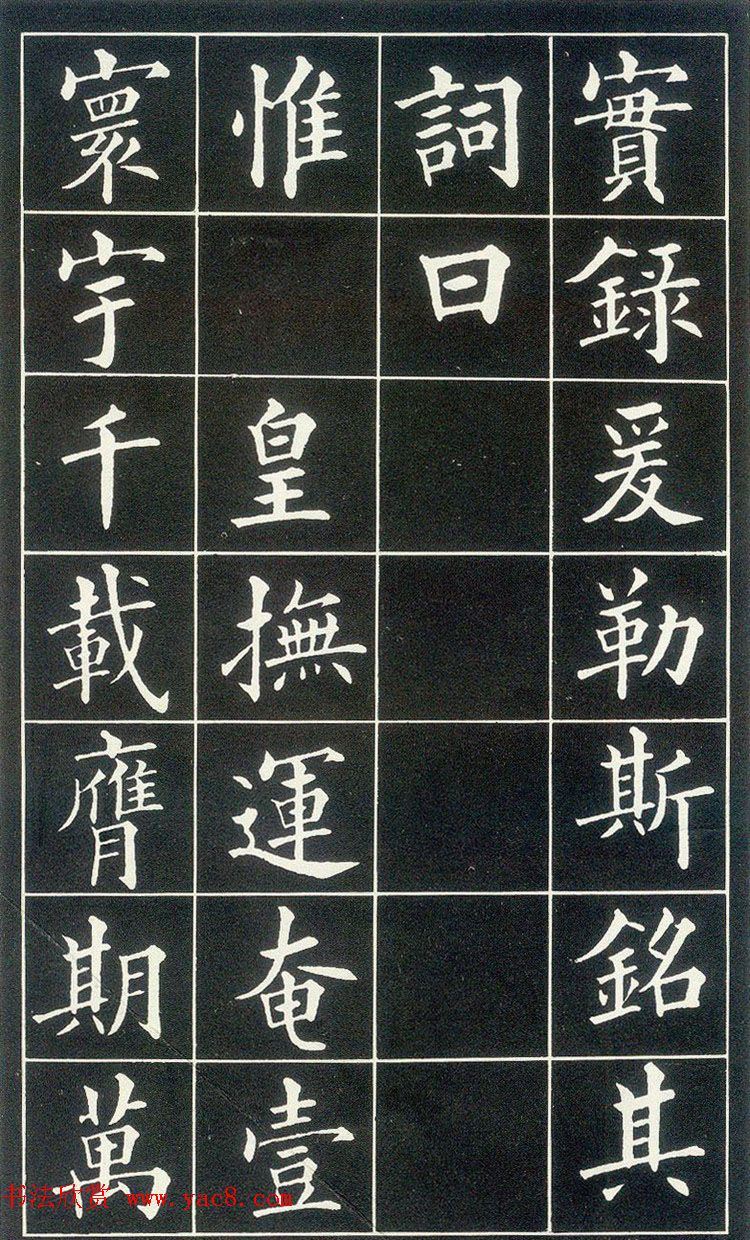 實錄爰勒斯銘其
詞曰
惟 皇撫運奄壹
寰宇千載膺期萬
书法欣赏 www.yac8.com